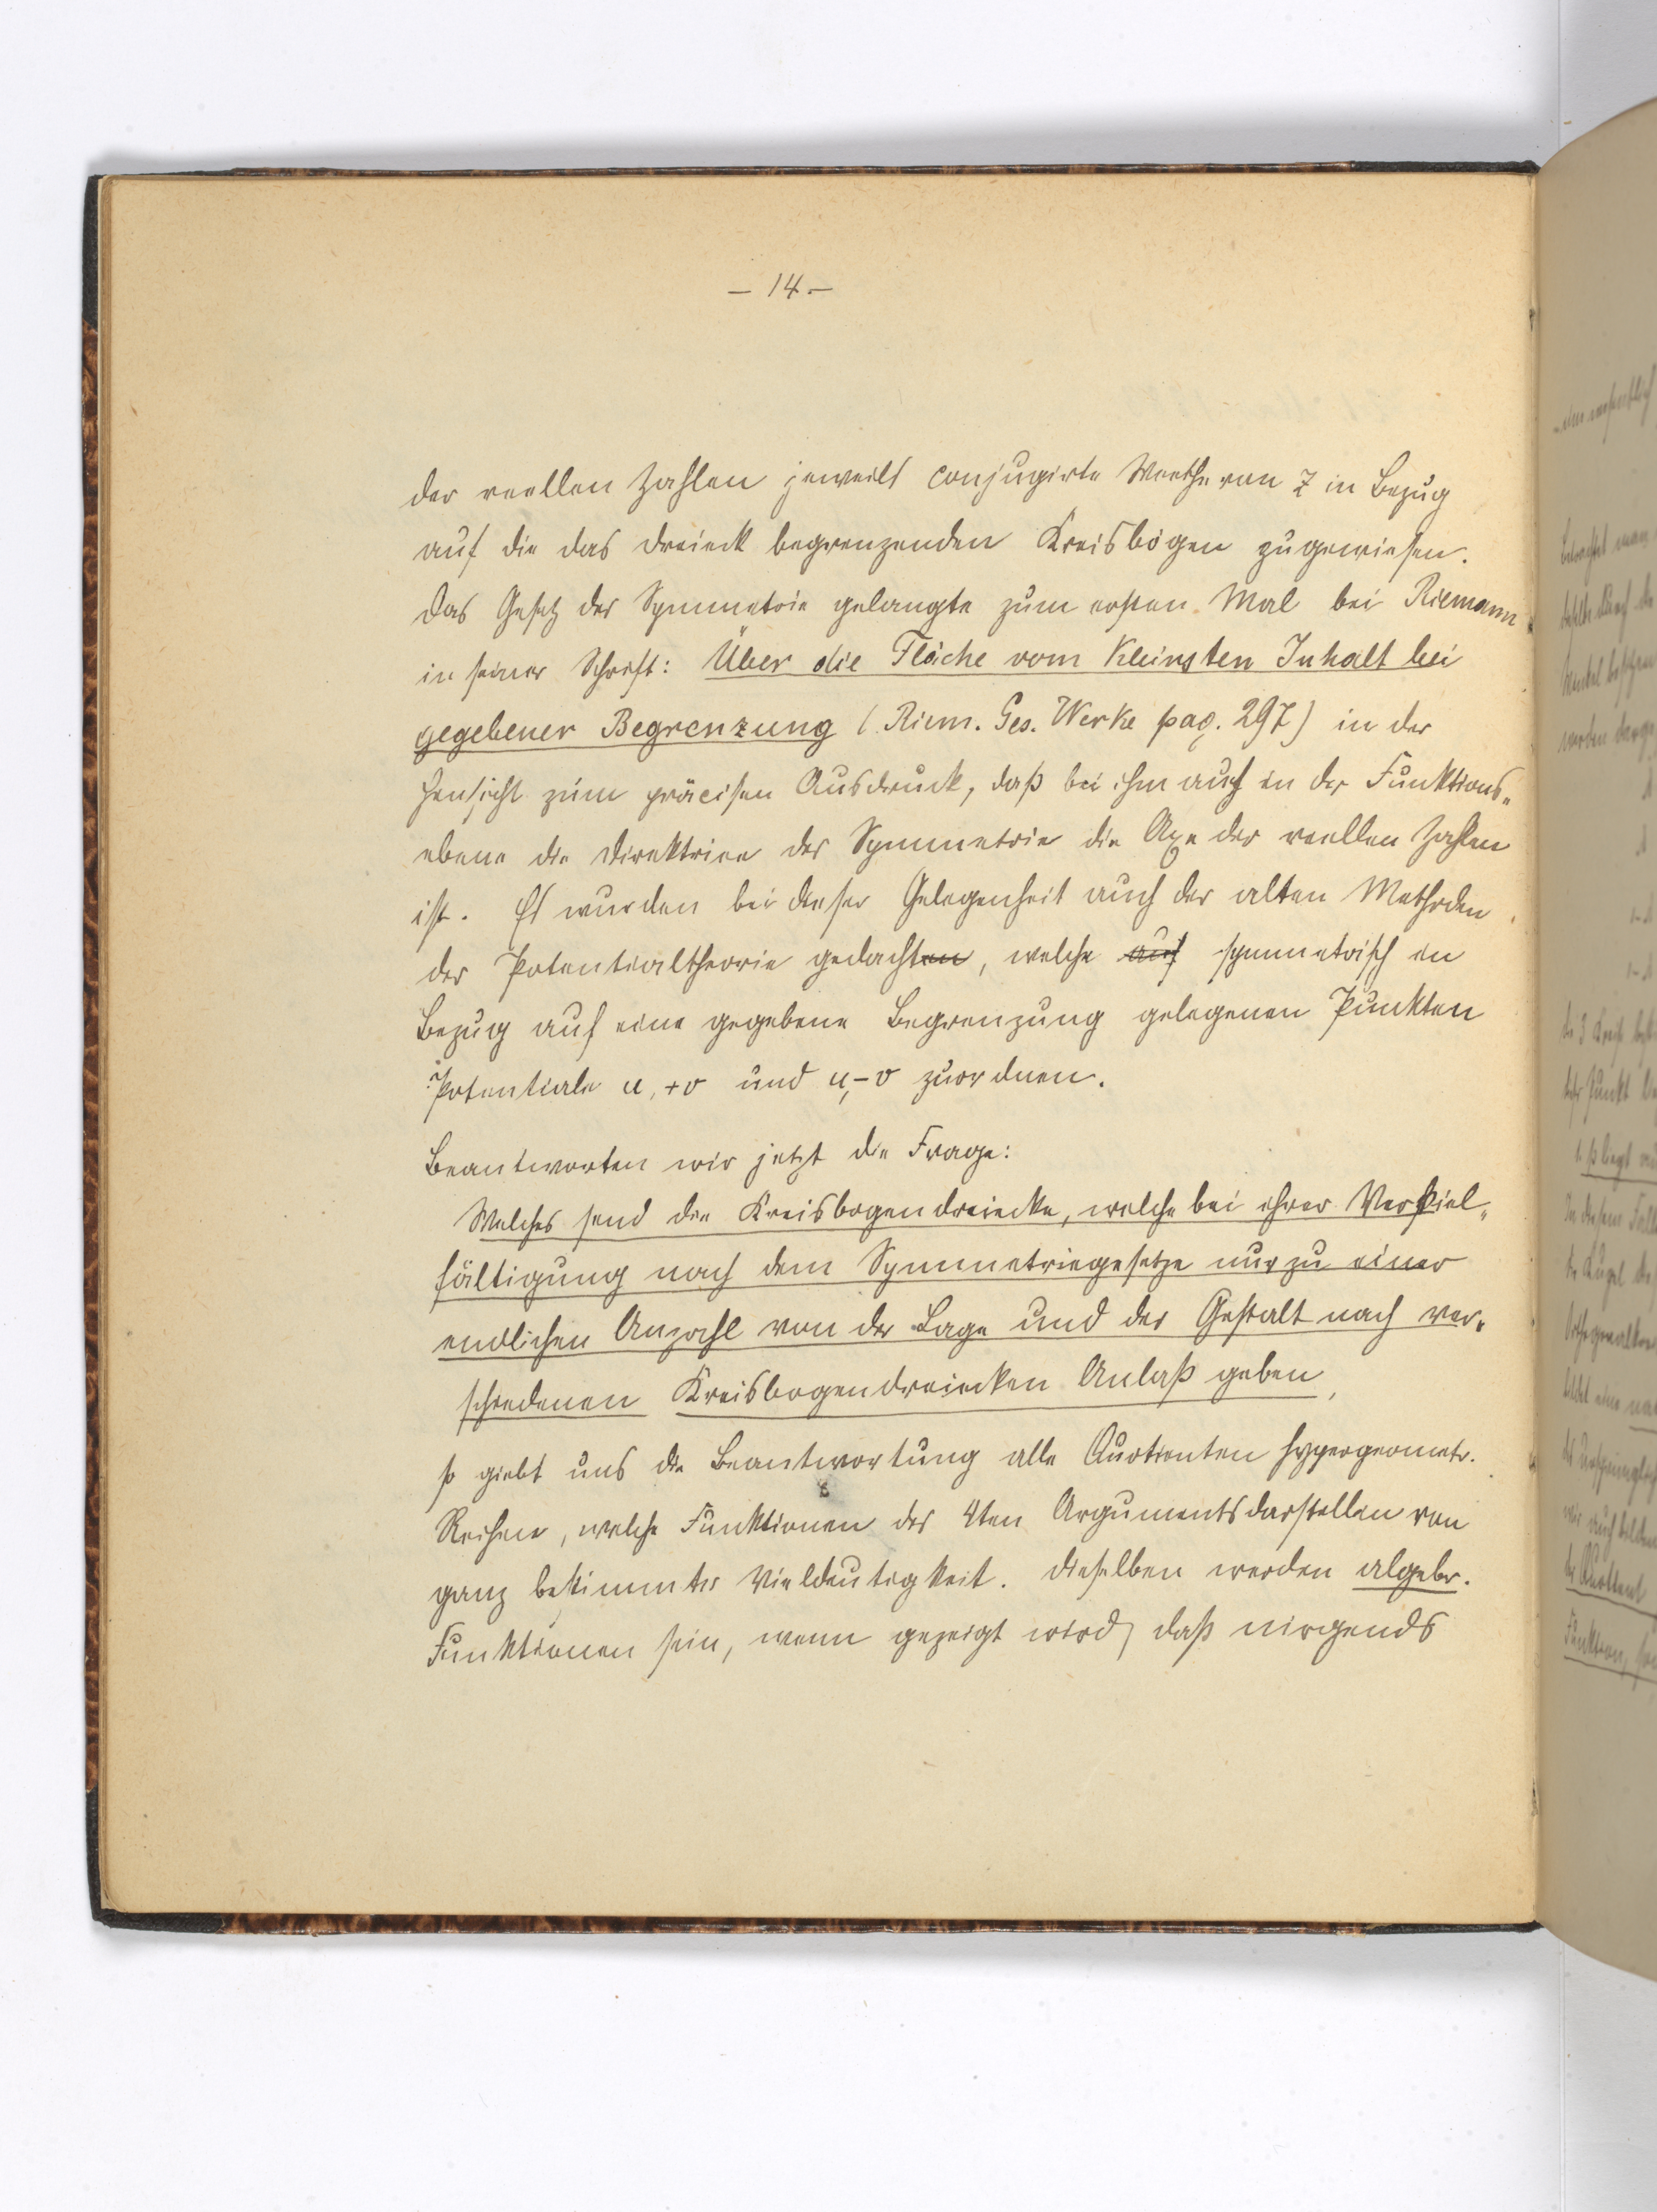 – 14. –
der reellen Zahlen jeweils conjugirte Werthe von z in Bezug
auf die das Dreieck begrenzenden Kreisbögen zugewiesen.
Das Gesetz der Symmetrie gelangte zum ersten Mal bei Riemann
in seiner Schrift: Über die Fläche vom Kleinsten Inhalt bei
gegebener Begrenzung (Riem. Ges. Werke pag. 297) in der
Hinsicht zum präcisen Ausdruck, daß bei ihm auch in der Funktions-
ebene die Direktrice der Symmetrie die Axe der reellen Zahlen
ist. Es wurden bei dieser Gelegenheit auch der alten Methoden
der Potentialtheorie gedachten, welche auch symmetrisch in
Bezug auf eine gegebene Begrenzung gelegenen Punkten
Potentiale u, +v und u, –v zuordnen.
Beantworten wir jetzt die Frage:
Welches sind die Kreisbogendreiecke, welche bei ihrer Verviel-
fältigung nach dem Symmetriegesetze nur zu einer
endlichen Anzahl von der Lage und der Gestalt nach ver-
schiedenen Kreisbogendreiecken Anlaß geben,
so giebt uns die Beantwortung alle Quotienten hypergeometr.
Reihen, welche Funktionen des 4ten Arguments darstellen von
ganz bestimmter Vieldeutigkeit. Dieselben werden algebr.
Funktionen sein, wenn gezeigt wird, daß nirgends